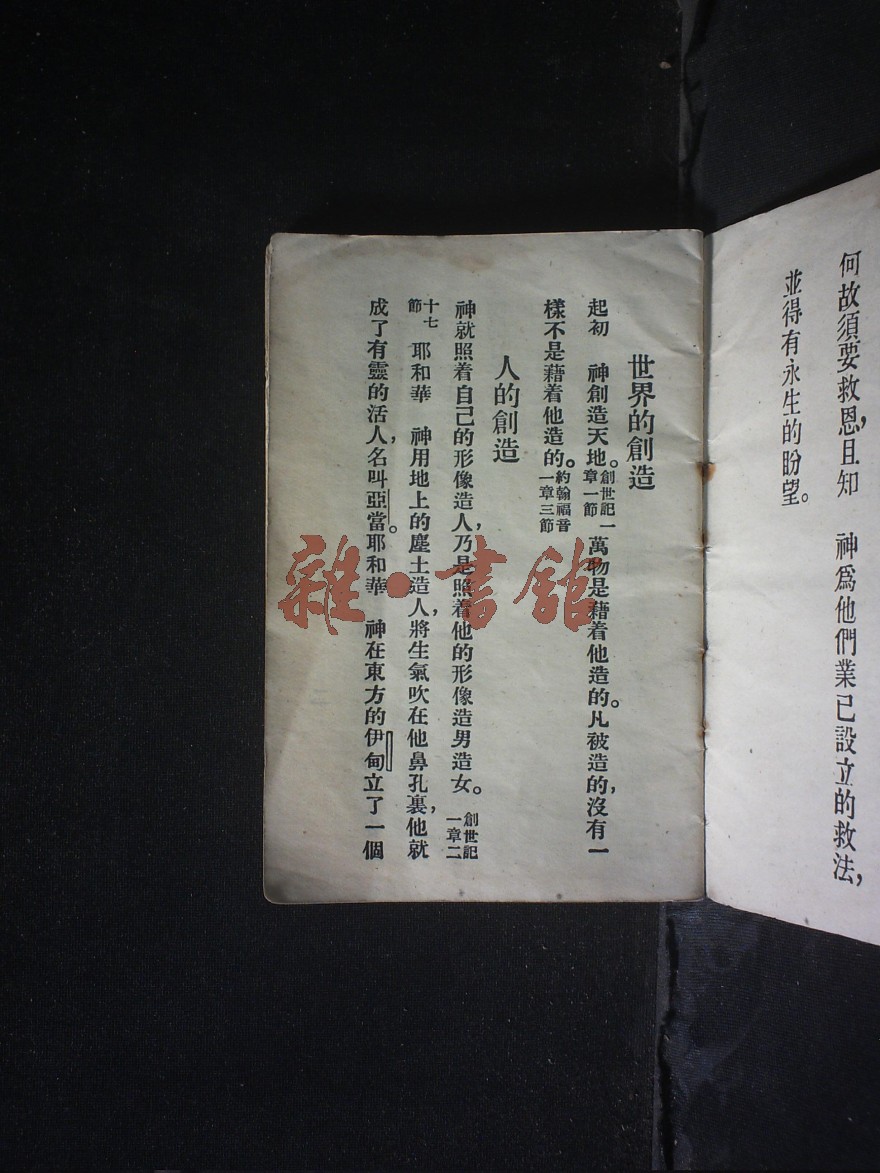 何故須要救恩，且知　神爲他們業已設立的救法，
並得有永生的盼望。
世界的創造
起初　神創造天地。創世記一章一節萬物是藉着他造的。凡被造的，沒有一
樣不是藉着他造的。約翰福音一章三節
人的創造
神就照着自己的形像造人，乃是照着他的形像造男造女。創世記一章二
十七節　耶和華　神用地上的塵土造人，將生氣吹在他鼻孔裏，他就
成了有靈的活人，名叫亞當。耶和華　神在東方的伊甸立了一個
雜·書舘